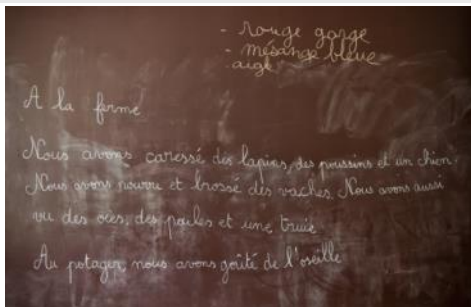 - rouge gorge
- mésange bleue
aigle
A la ferme
Nous avons caressé des lapins, des poussins et un chien.
Nous avons nourri et brossé des vaches. Nous avons aussi
vu des oies, des poules et une truie
Au potager, nous avons goûté de l'oseille